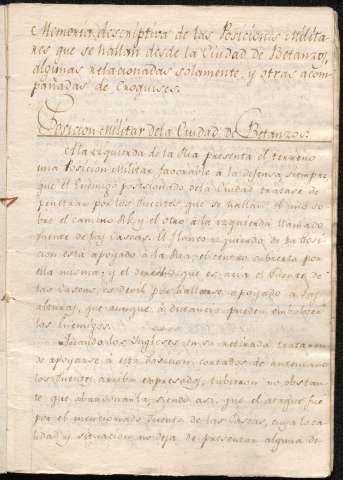 Memoria descriptiva de las Posiciones milita-
res que se hallan desde la Ciudad de Betanzos,
algunas relacionadas solamente, y otras acom-
pañadas de Croquises.
Posicion militar de la Ciudad de Betanzos:
A la yzquierda de la Ria presenta el terreno
una Posicion militar favorable à la defensa siempre
que el Enemigo posesionado de la Ciudad tratase de
penetrar por los Puentes que se hallan, el uno so-
bre el camino Rl. y el otro à la yzquierda llamado
Puente de las Cascas. El flanco yzquierdo de la Posi-
cion esta apoyado à la Ria; el centro cubierto por
ella misma; y el derecho que es acia el Puente de
las Cascas, es devil por hallarse apoyado a las
alturas, que aunque à distancia pueden embolver
los Enemigos.
los Ingleses en su retirada trataron
de apoyarse à esta Posicion, cortados de antemano
los Puentes arriba expresados, tubieron no obstan-
te que abandonarla, siendo asi, que el ataque fué
por el mencionado Puente de las Cascas, cuya loca-
lidad y situacion no deja de presentar alguna di-